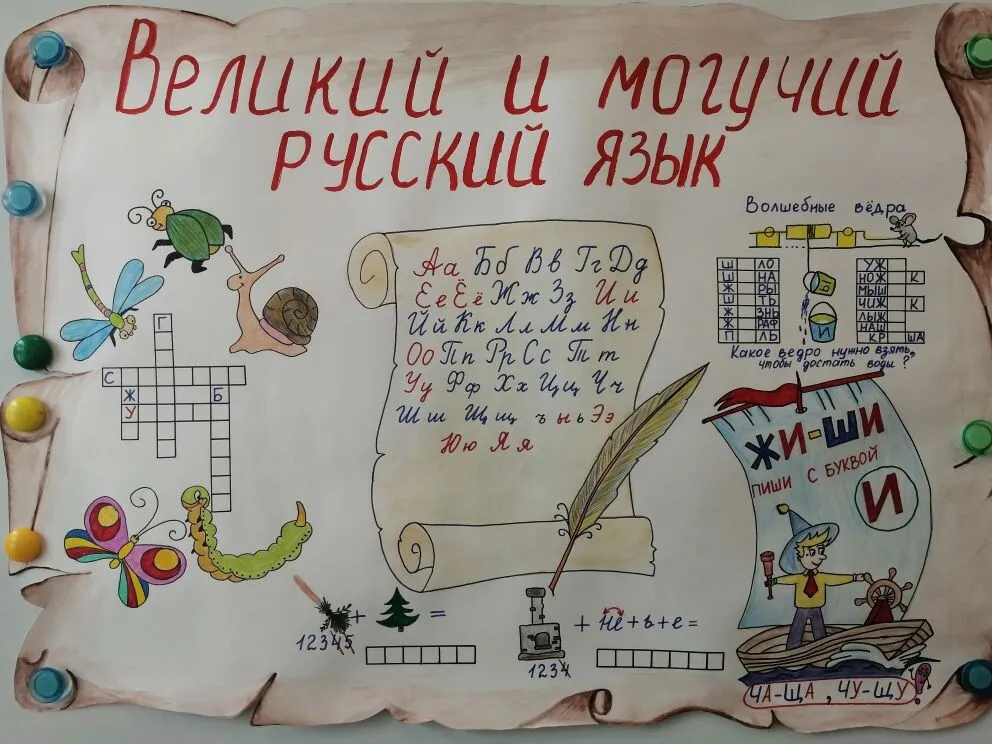 Великий и могучий
русский язык
Волшебные вёдра
Ш ЛО
Ш НА
Ж РЫ
Ш ТЬ
Ж ЗНЬ
Ж РАФ
П ЛЬ
УЖ
НОЖ К
МЫШ
ЧИЖ К
ЛЫЖ
НАШ
КР ША
И
Какое ведро нужно взять,
чтобы достать воды?
Аа Бб Вв Гг Дд
Ее Ёё Жж Зз Ии
Йй Кк Лл Мм Нн
Оо Пп Рр Сс Тт
Уу Фф Хх Цц Чч
Шш Щщ ъ ы ь Ээ
Юю Яя
Г
С
Ж Б
У
ЖИ-ШИ
ПИШИ С БУКВОЙ
И
+ =
12345
+ не + ь + е =
1234
ЧА-ЩА, ЧУ-ЩУ!